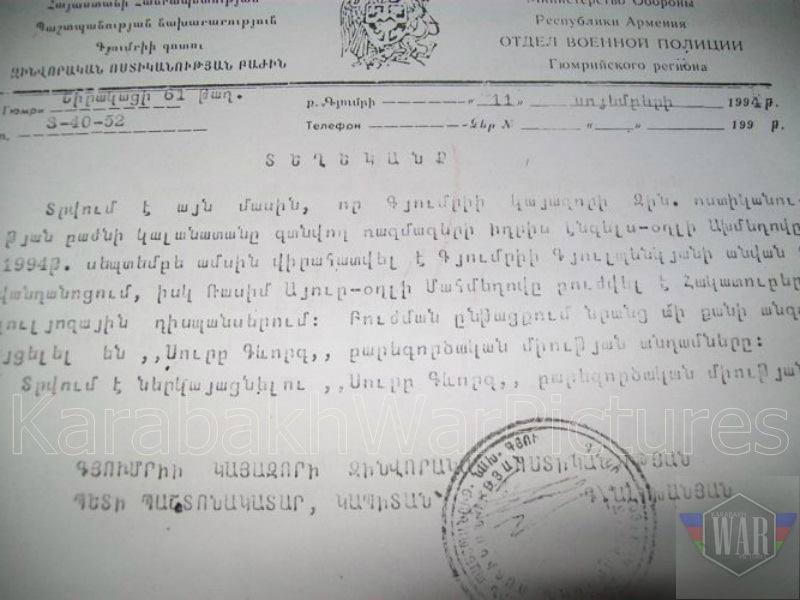 Հայաստանի Հանրապետության
Պաշտպանության նախարարություն
Գյումրիի գոտու
ԶԻՆՎՈՐԱԿԱՆ ՈՍՏԻԿԱՆՈՒԹՅԱՆ ԲԱԺԻՆ
Министерство Обороны
Республики Армения
ОТДЕЛ ВОЕННОЙ ПОЛИЦИИ
Гюмрийского региона
Гюмри Շիրակացի 61 թաղ.
3-40-52
ք. Գյումրի „ 11 „ նոյեմբերի 1994թ.
Телефон Ձեր N „ „ 199 թ.
ՏԵՂԵԿԱՆՔ
Տրվում է այն մասին, որ Գյումրիի կայազորի Զին. ոստիկանու-
թյան բաժնի կալանատանը գտնվող ռազմագերի Իդրիս Էնգելս-օղլի Ախմեդովը
1994թ. սեպտեմբե ամսին վիրահատվել է Գյումրիի Գյուլպենկյանի անվան
վանդանոցում, իսկ Ռասիմ Այուր-օղլի Մահմեդովը բուժվել է Հակատուբեր
կուլյոզային դիսպանսերում: Բուժման ընթացքում նրանց մի քանի անգ
յցելել են ,,Սուրբ Գևորգ,, բարեգործական միության անդամները:
Տրվում է ներկայացնելու ,,Սուրբ Գևորգ,, բարեգործական միության
KarabakhWarPictures
ԳՅՈՒՄՐԻԻ ԿԱՅԱԶՈՐԻ ԶԻՆՎՈՐԱԿԱՆ ՈՍՏԻԿԱՆՈՒԹՅԱՆ
ՊԵՏԻ ՊԱՇՏՈՆԱԿԱՏԱՐ, ԿԱՊԻՏԱՆ
KARABAKH
WAR
PICTURES